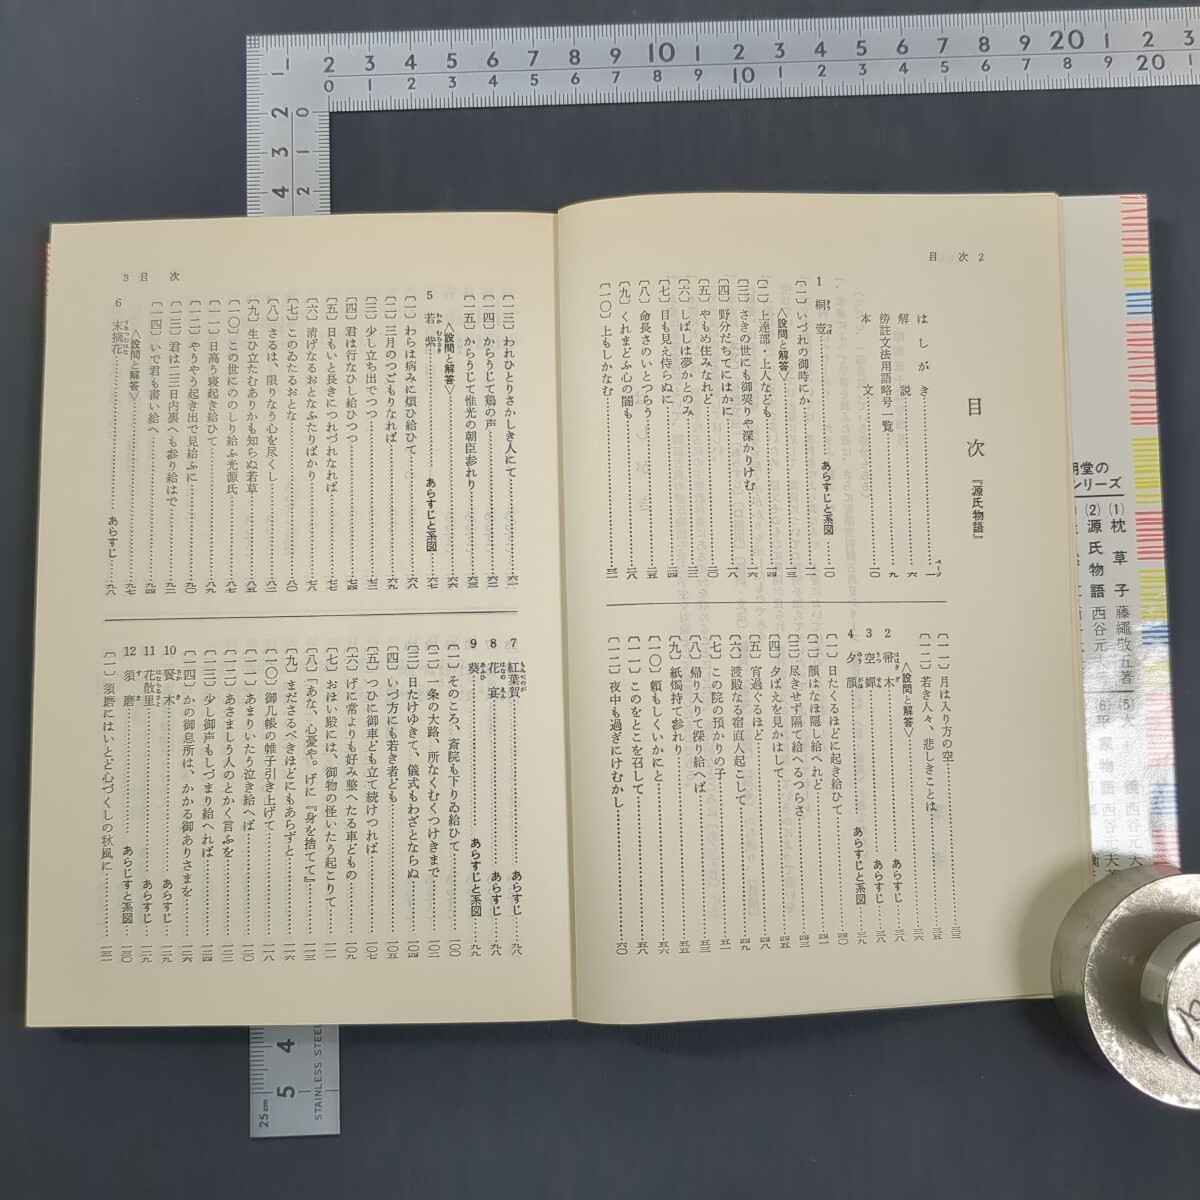 目次 2
目次 『源氏物語』
はしがき……一
解説……六
傍註文法用語略号一覧……九
本文……一〇
1 桐壺……あらすじと系図……一〇
〔一〕いづれの御時にか……一一
〈設問と解答〉……一三
〔二〕上達部・上人なども……一三
〔三〕さきの世にも御契りや深かりけむ……一六
〔四〕野分だちてにはかに……一八
〔五〕やもめ住みなれど……二〇
〔六〕しばしは夢かとのみ……二三
〔七〕目も見え侍らぬに……二三
〔八〕命長さのいとつらう……二五
〔九〕くれまどふ心の闇も……二八
〔一〇〕上もしかなむ……三一
〔一一〕月は入り方の空……三三
〔一二〕若き人々、悲しきことは……三五
〈設問と解答〉……三六
2 帚木……あらすじ……三八
3 空蟬……あらすじ……三八
4 夕顔……あらすじと系図……三九
〔一〕日たくるほどに起き給ひて……四〇
〔二〕顔はなほ隠し給へれど……四一
〔三〕尽きせず隔て給へるつらさ……四三
〔四〕夕ばえを見かはして……四五
〔五〕宵過ぐるほど……四八
〔六〕渡殿なる宿直人起こして……四九
〔七〕この院の預かりの子……五〇
〔八〕帰り入りて探り給へば……五三
〔九〕紙燭持て参れり……五五
〔一〇〕頼もしくいかにと……五六
〔一一〕このをとこを召して……五八
〔一二〕夜中も過ぎにけむかし……六〇
3 目次
〔一三〕われひとりさかしき人にて……六一
〔一四〕からうじて鶏の声……六二
〔一五〕からうじて惟光の朝臣参れり……六三
〈設問と解答〉……六六
5 若紫……あらすじと系図……六七
〔一〕わらは病みに煩ひ給ひて……六九
〔二〕三月のつごもりなれば……六九
〔三〕少し立ち出でつつ……七二
〔四〕君は行なひし給ひつつ……七四
〔五〕日もいと長きにつれづれなれば……七六
〔六〕清げなるおとなふたりばかり……七八
〔七〕このゐたるおとな……八〇
〔八〕さるは、限りなう心を尽くし……八二
〔九〕生ひ立たむありかも知らぬ若草……八五
〔一〇〕この世にののしり給ふ光源氏……八八
〔一一〕日高う寝起き給ひて……九一
〔一二〕やうやう起き出で見給ふに……九二
〔一三〕君は二三日内裏へも参り給はで……九二
〔一四〕いで君も書い給へ……九四
〈設問と解答〉……九七
6 末摘花……あらすじ……九八
7 紅葉賀……あらすじ……九八
8 花宴……あらすじ……九八
9 葵……あらすじと系図……九九
〔一〕そのころ、斎院も下りゐ給ひて……一〇〇
〔二〕一条の大路、所なくむくつけきまで……一〇二
〔三〕日たけゆきて、儀式もわざとならぬ……一〇四
〔四〕いづ方にも若き者ども……一〇五
〔五〕つひに御車ども立て続けつれば……一〇七
〔六〕げに常よりも好み整へたる車どもの……一〇九
〔七〕おほい殿には、御物の怪いたう起こりて……一一一
〔八〕「あな、心憂や。げに『身を捨てて』……一一三
〔九〕まださるべきほどにもあらずと……一一六
〔一〇〕御几帳の帷子引き上げて……一一八
〔一一〕あまりいたう泣き給へば……一二〇
〔一二〕あさましう人のとかく言ふを……一二二
〔一三〕少し御声もしづまり給へれば……一二四
〔一四〕かの御息所は、かかる御ありさまを……一二六
10 賢木……あらすじ……一二九
11 花散里……あらすじ……一二九
12 須磨……あらじすと系図……一三〇
〔一〕須磨にはいとど心づくしの秋風に……一三一
明堂の
シリーズ
(1) 枕草子 藤縄敬五著
(2) 源氏物語 西谷元
(5) 大鏡 西谷元夫
(6) 平家物語 西谷元夫著
STAINLESS STEE
25cm